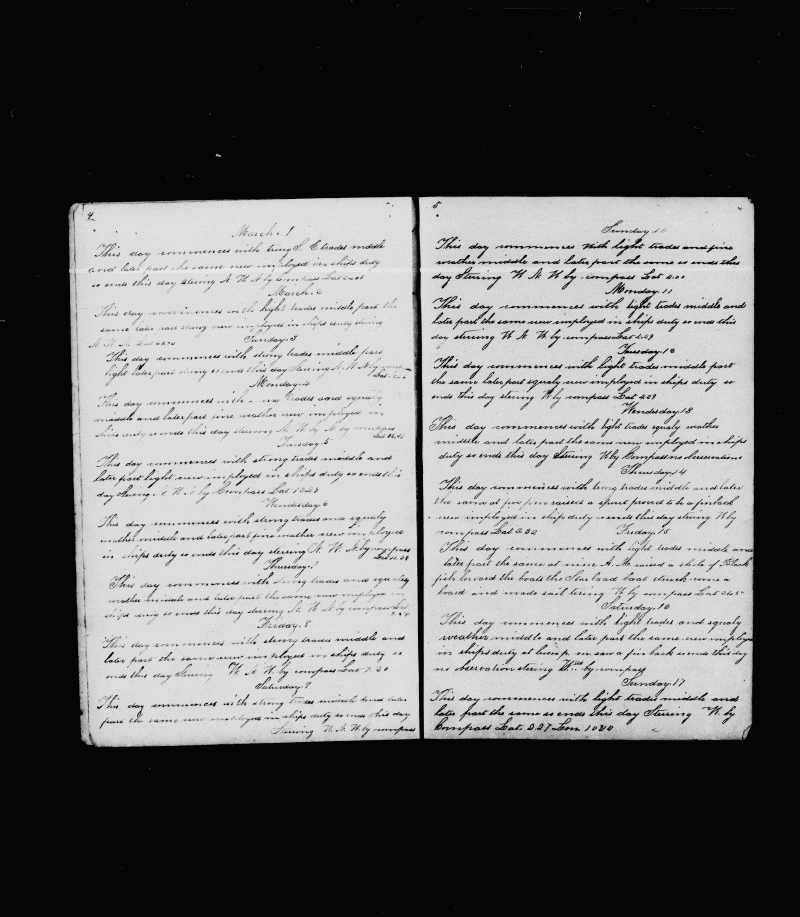 4
March. 1
This day commences with trong S. E trades middle
and later part the same crew imployed in ships duty
so ends this day stering N. W. N by Compass Lat
March. 2
This day commences with light trades middle part the
same later part stong crew imployed in ships duty stering
Sunday. 3
This day commences with strong trades middle part
light later part stong so ends this day Stering N. W. N by
Monday. 4
This day commences with trades and squaly
middle and later part fine weather crew imployed in
ships duty so ends this day stering N. W. by N. by compass
Tuesday 5
This day commences with strong trades middle and
later part light crew imployed in ships duty so ends this
day stering N. W. N by Compass Lat
Wendesday 6
This day commences with strong trades and squaly
wather middle and later part fine wather crew imployed
in ships duty so ends this day stering N. W. N by compass
Thursday. 7
This day commences with strong trades and squaley
wather middle and later part the same crew imployed in
ships duty so ends this day stering N. W. N by compass Lat
Friday. 8
This day commences with strong trades middle and
later part the same crew imployed in ships duty so
ends this day Stering W. N. W. by compass Lat 7. 20
Saturday. 9
This day commences with strong trades middle and later
part the same crew imployed in ships duty so ends this day
Stering W. N. W by compass
5
Sunday. 10
This day commences with light trades and fine
weather middle and later part the same so ends this
day Stering W. N. W by. compass Lat
Monday. 11
This day commences with light trades middle and
later part the same crew imployed in ships duty so ends this
day stering W. N. W by compass Lat 4.29
Tuesday. 12
This day commences with light trades middle part
the same later part squaly crew imployed in ships duty so
ends this day stering W by compass Lat 2.29
Wendesday. 13
This day commences with light trades squaly wather
middle and later part the same crew imployed in ships
duty so ends this day Stering W by Compass no observations
Thursday. 14
This day commences with trong trades middle and later
the same at five pm raised a spout proved to be a finback
crew imployed in ship duty so ends this day stering W by
compass Lat 2.32
Friday. 15
This day commences with light trades middle and
later part the same at nine A. M raised a shole of Black
fish lowerd the boats the Starboad boat struck come a
board and made sail tering W by compass Lat
Saturday. 16
This day commences with light trades and squaly
weather middle and later part the same crew imployed
in ships duty at saw a fin back so ends this day
no observation stering by compass
Sunday. 17
This day commences with light trades middle and
later part the same so ends this day Stering W. by
Compass Lat. 2.27 Lon. 104